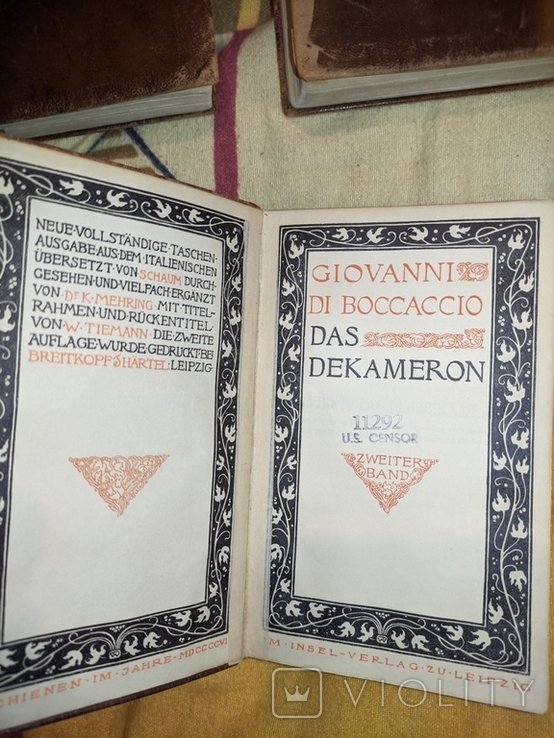 NEUE·VOLLSTÄNDIGE·TASCHEN-
AUSGABE·AUS·DEM·ITALIENISCHEN
ÜBERSETZT·VON·SCHAUM·DURCH-
GESEHEN·UND·VIELFACH·ERGÄNZT
VON·DR·K·MEHRING·MIT·TITEL-
RAHMEN·UND·RÜCKENTITEL
VON·W·TIEMANN·DIE·ZWEITE
AUFLAGE·WURDE·GEDRUCKT·BEI
BREITKOPF & HÄRTEL·LEIPZIG
CHIENEN·IM·JAHRE·MDCCCCVI
GIOVANNI
DI BOCCACCIO
DAS
DEKAMERON
11292
U.S. CENSOR
ZWEITER
BAND
M·INSEL-VERLAG·ZU·LEIPZI
VIOLITY